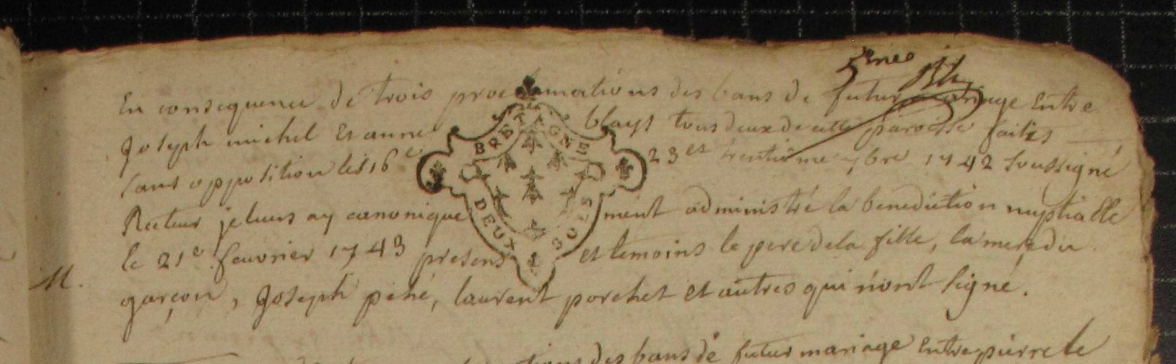 5me
En consequence de trois proclamations des bans de futur mariage Entre
Joseph michel Et anne blays tous deux de cette paroisse faites
sans opposition les 16e 23e et trentieme xbre 1742 soussigné
Recteur je leurs ay canoniquement administré la benediction nuptialle
le 21e fevrier 1743 presens et temoins le pere de la fille, la mere du
garçon, Joseph pehé, laurent porchet et autres qui n'ont signé.
M.
BRETAGNE
DEUX SOLS
des bans de futur mariage Entre pierre le